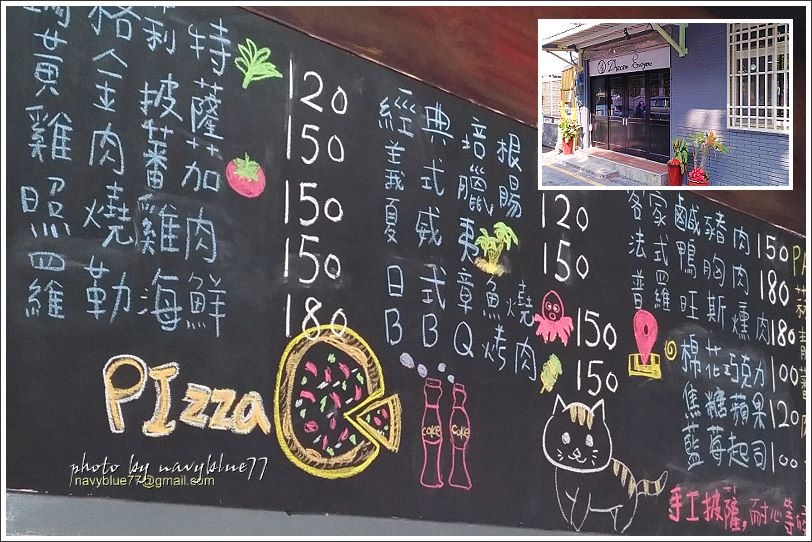 瑪格莉特 120
黃金披薩 150
雞肉蕃茄 150
照燒雞肉 150
羅勒海鮮 180
經典培根
義式臘腸 120
夏威夷 150
日式章魚燒 150
BBQ烤肉 150
客家鹹豬肉 150
法式鴨胸肉 180
普羅旺斯燻肉 180
棉花巧克力 100
焦糖蘋果 120
藍莓起司 100
手工披薩,耐心等
PIzza
coke
coke
Dream
photo by navyblue77
navyblue77@gmail.com